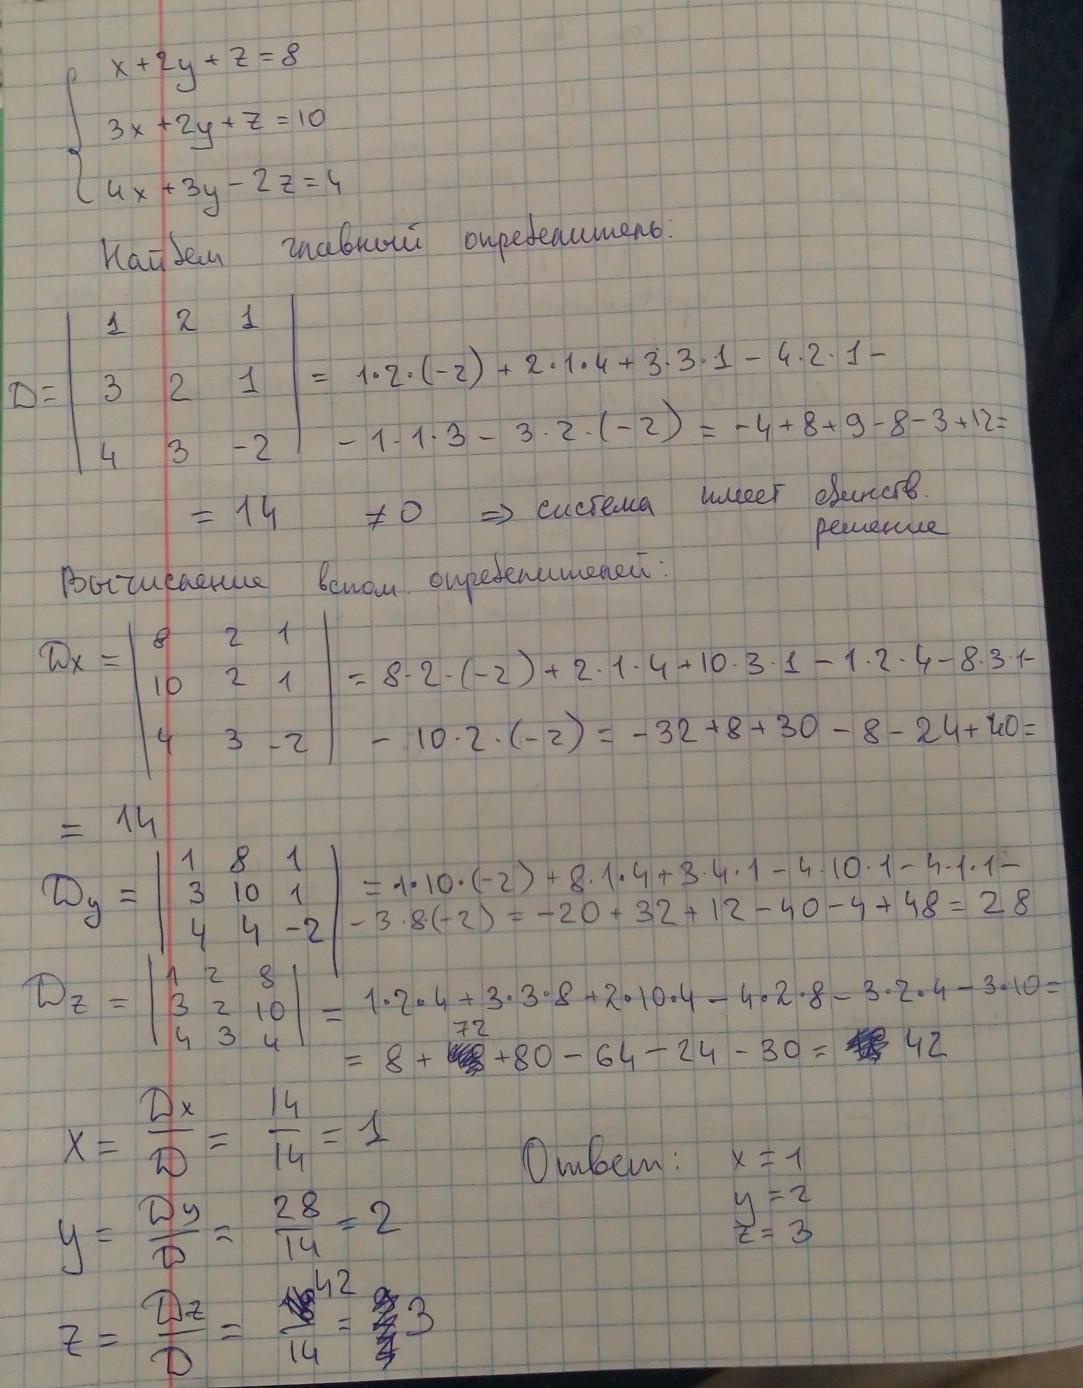 x+2y+z=8
3x+2y+z=10
4x+3y-2z=4
Найдем главный определитель:
D= | 1 2 1 |
| 3 2 1 | = 1·2·(-2) + 2·1·4 + 3·3·1 - 4·2·1 -
| 4 3 -2 | - 1·1·3 - 3·2·(-2) = -4+8+9-8-3+12=
= 14 ≠0 ⇒ система имеет единств.
решение
Вычисление вспом. определителей:
Dx = | 8 2 1 |
| 10 2 1 | = 8·2·(-2)+2·1·4+10·3·1-1·2·4-8·3·1-
| 4 3 -2 | - 10·2·(-2) = -32+8+30-8-24+40=
= 14
Dy = | 1 8 1 |
| 3 10 1 | =1·10·(-2)+8·1·4+3·4·1-4·10·1-4·1·1-
| 4 4 -2 | -3·8·(-2) = -20+32+12-40-4+48=28
Dz = | 1 2 8 |
| 3 2 10 | = 1·2·4+3·3·8+2·10·4-4·2·8-3·2·4-3·10=
| 4 3 4 |
= 8+72+80-64-24-30= 42
x = Dx/D = 14/14 = 1
Ответ: x=1
y=2
z=3
y = Dy/D = 28/14 = 2
z = Dz/D = 42/14 = 3